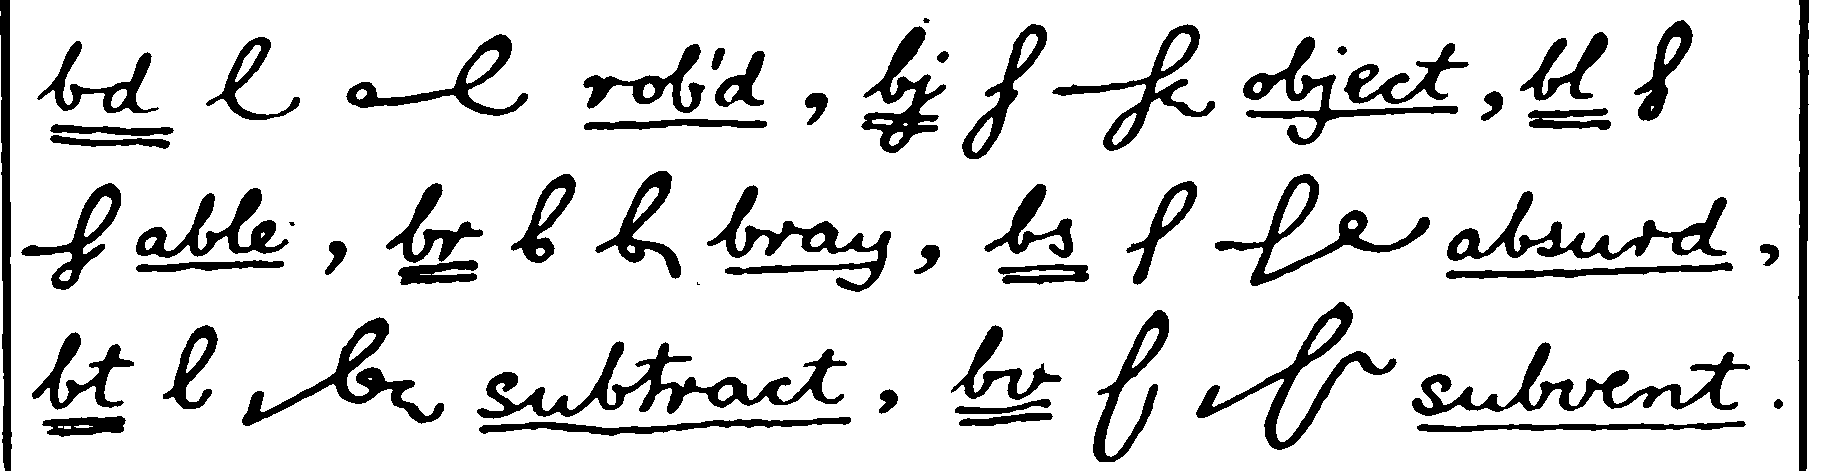 bd rob'd, bj object, bl
able, br bray, bs absurd,
bt subtract, bv subvent.